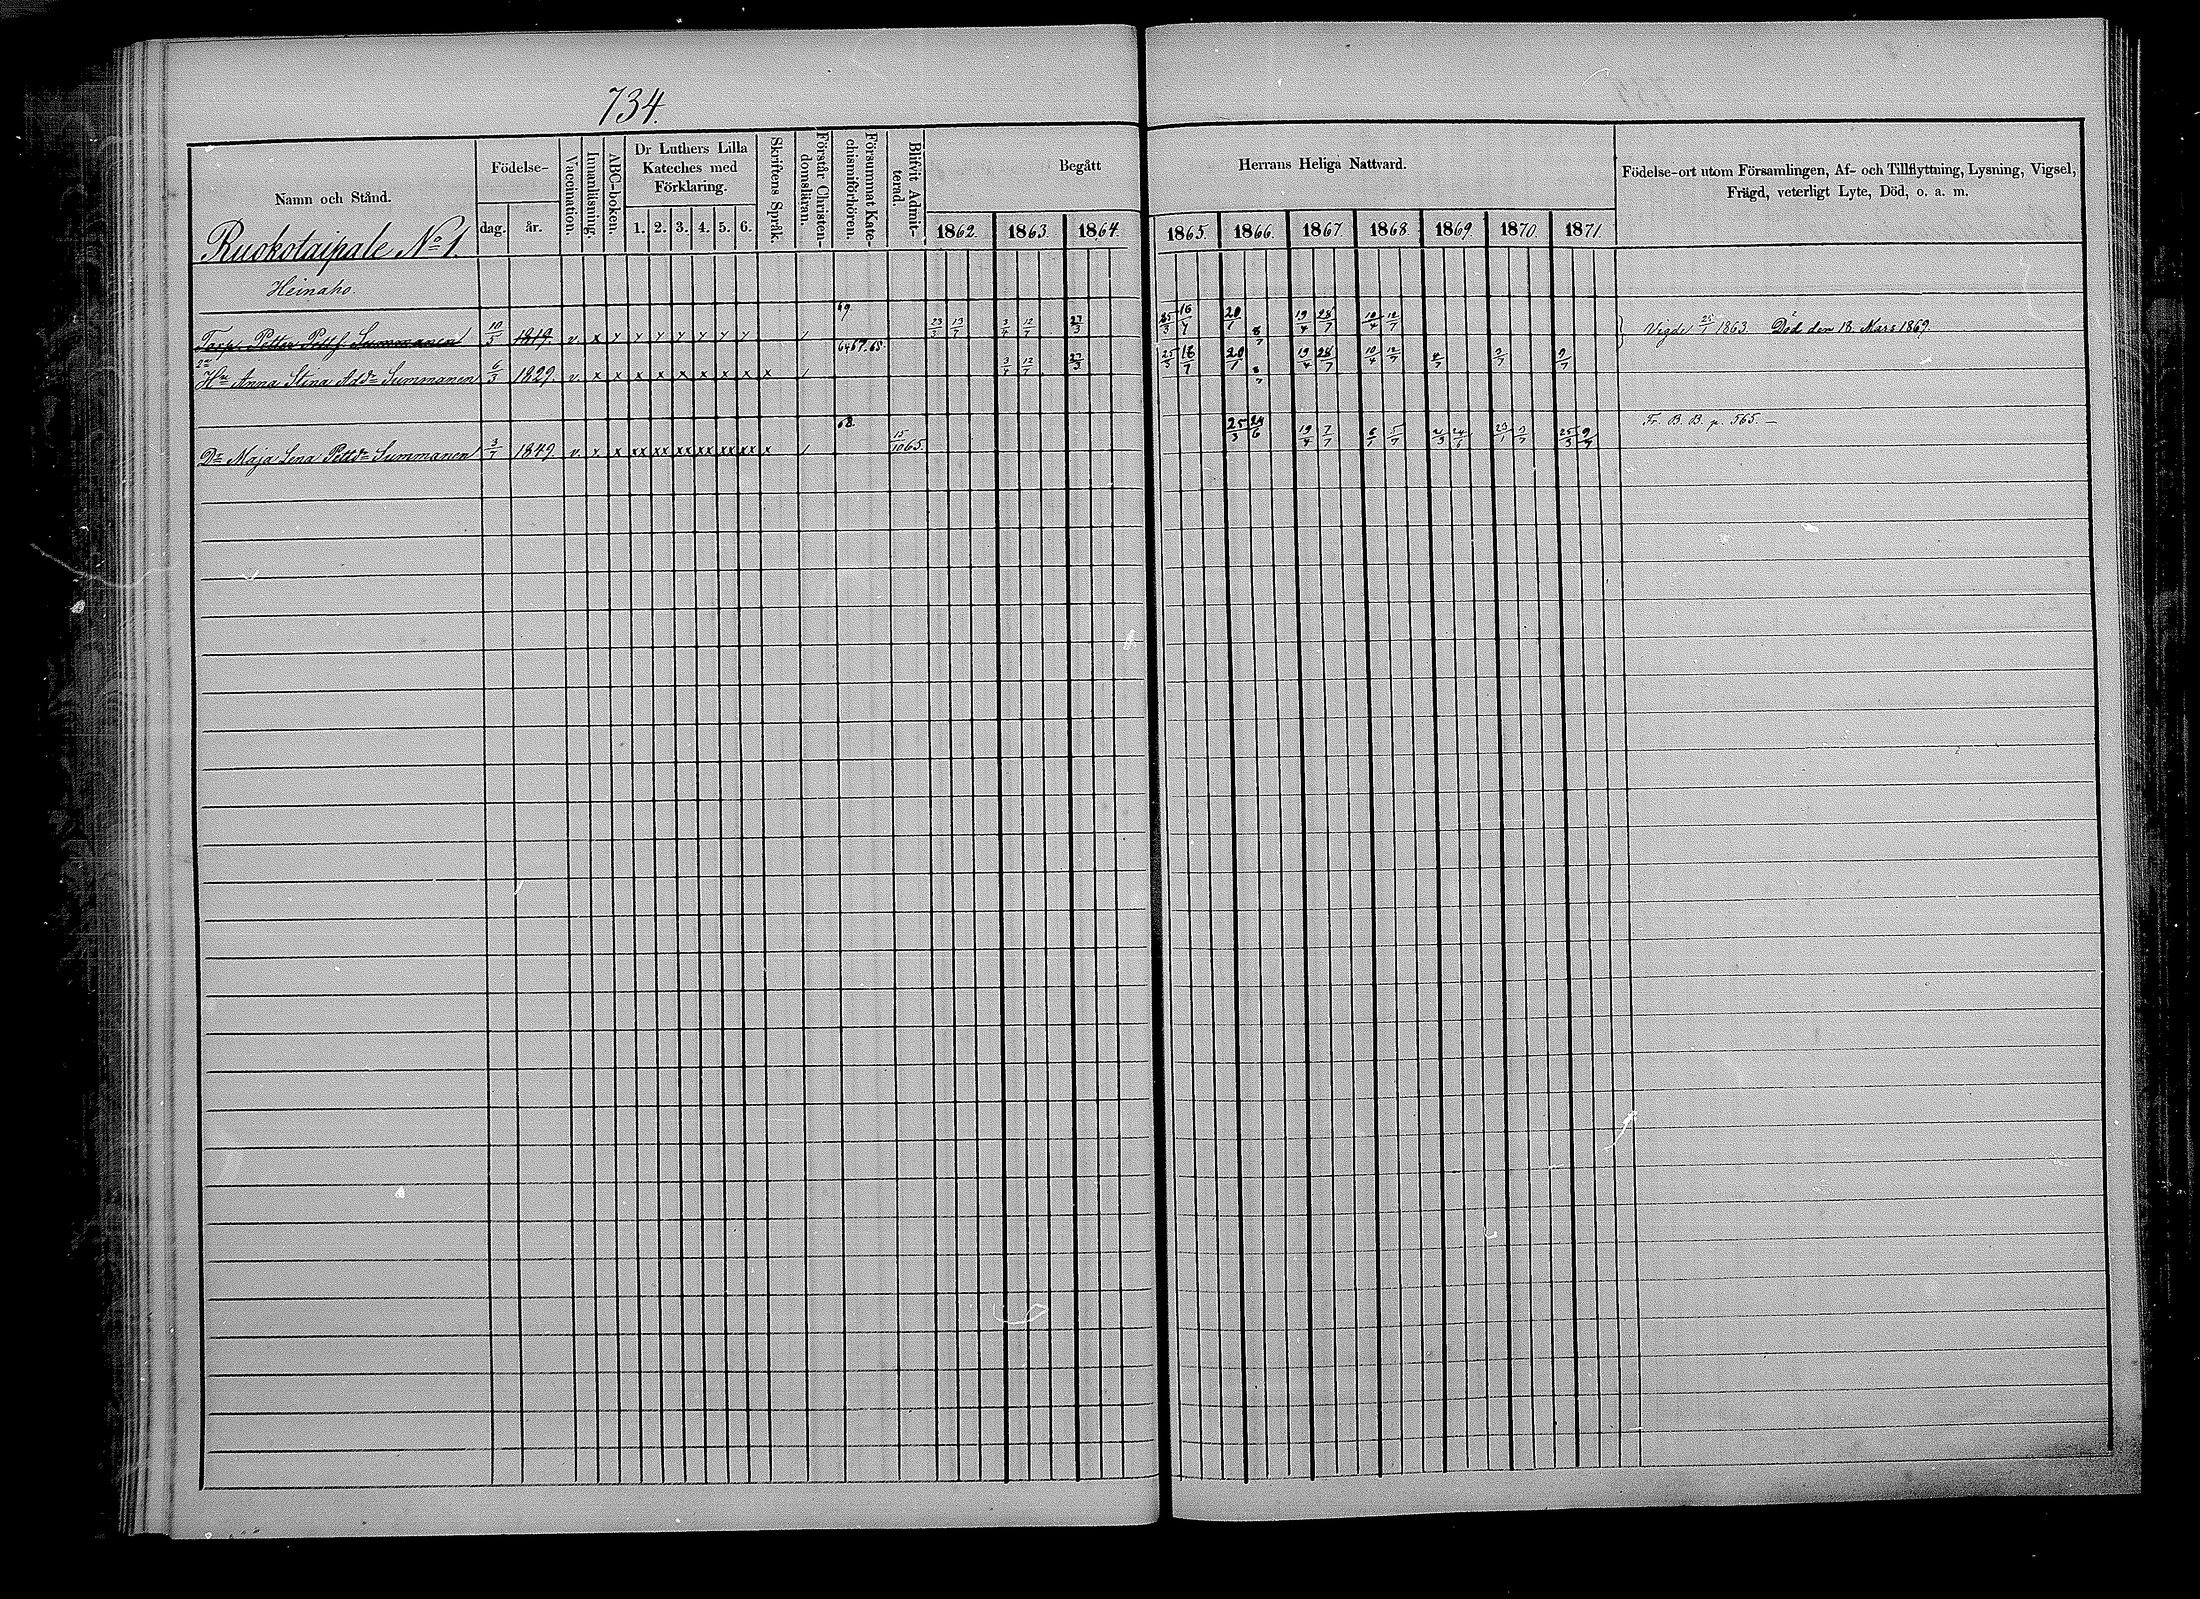 734.
Namn och Stånd.
Födelse-
dag. år.
Vaccination.
Innanläsning.
ABC-boken.
Dr Luthers Lilla
Kateches med
Förklaring.
1. 2. 3. 4. 5. 6.
Skriftens Språk.
Förstår Christen-
domsläran.
Försummat Kate-
chismiförhören.
Blifvit Admit-
terad.
Begått Herrans Heliga Nattvard.
1862. 1863. 1864. 1865. 1866. 1867. 1868. 1869. 1870. 1871.
Födelse-ort utom Församlingen, Af- och Tillflyttning, Lysning, Vigsel,
Frägd, veterligt Lyte, Död, o. a. m.
Ruokotaipale No 1.
Heinaho.
Torp. Petter Pettf. Summanen 10/5 1819. v. x y y y y y y y / 69 23/3 13/7 3/4 12/7 27/3 25/3 16/7 20/1 8/7 19/4 28/7 10/4 12/7 Vigde 25/1 1863. Död den 18 Mars 1869.
2a Hu Anna Stina Add:r Summanen 6/3 1829. v. x x x x x x x x x / 64 67. 68. 3/4 12/7 27/3 25/3 16/7 20/1 8/7 19/4 28/7 10/4 12/7 4/7 3/7 9/7
Dr Maja Lena Pettdr Summanen 3/1 1849 v. x x xx xx xx xx xx xx x / 68. 15/10 65. 25/3 24/6 19/4 7/7 6/1 5/7 2/3 24/6 23/1 3/7 25/3 9/7 Fr. B. B. p. 565. —